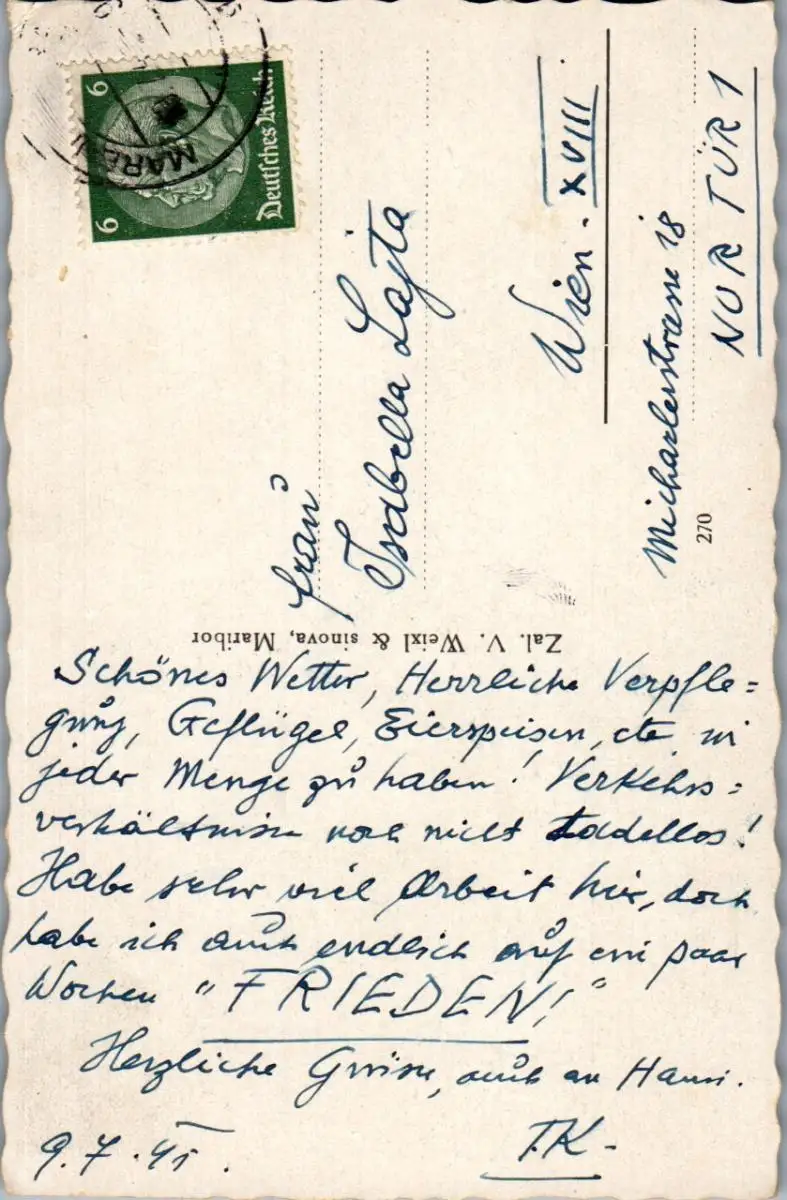 Schönes Wetter, Herrliche Verpfle=
gung, Geflügel, Eierspeisen, etc in
jeder Menge zu haben! Verkehrs=
verhältnisse noch nicht tadellos!
Habe sehr viel Arbeit hier, doch
habe ich auch endlich auf ein paar
Wochen "FRIEDEN!"
Herzliche Grüsse, auch an Hansi.
9.7.41.
T.K-
Zal. V. Weixl & sinova, Maribor
6
6
Deutsches Reich
MARB
Frau
Isabella Lajta
Wien - XVIII.
Michaelerstrasse 18
NUR TÜR 1
270